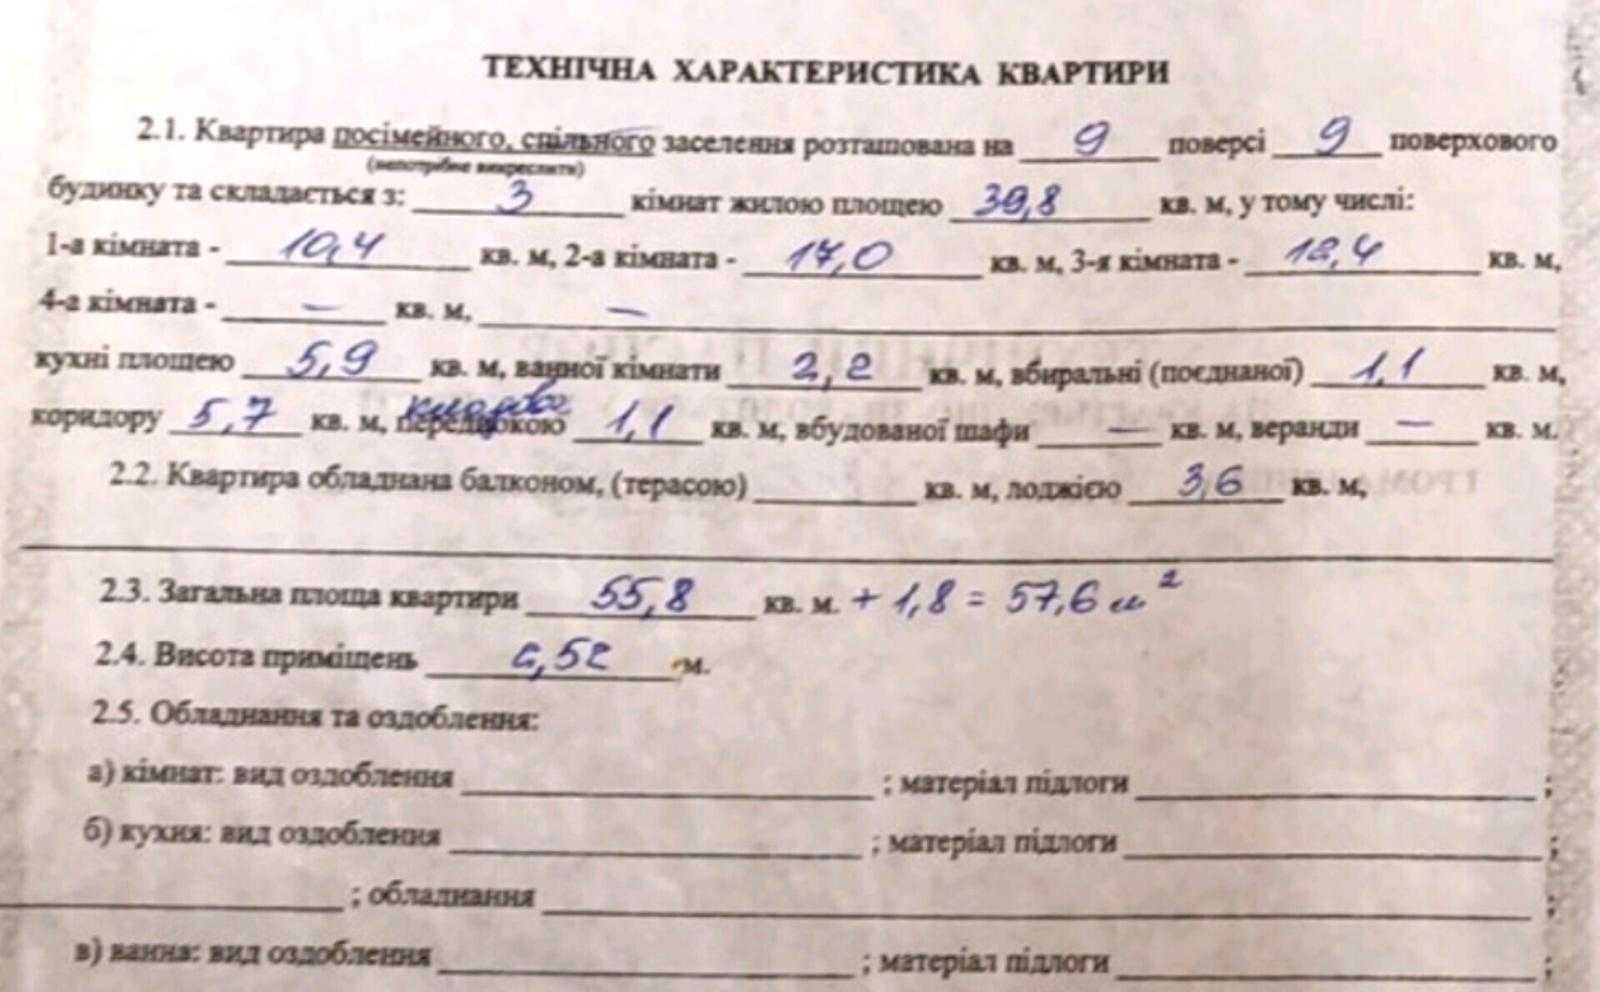 ТЕХНІЧНА ХАРАКТЕРИСТИКА КВАРТИРИ
2.1. Квартира посімейного, спільного заселення розташована на 9 поверсі 9 поверхового
(непотрібне викреслити)
будинку та складається з: 3 кімнат жилою площею 39,8 кв. м, у тому числі:
1-а кімната - 10,4 кв. м, 2-а кімната - 17,0 кв. м, 3-я кімната - 12,4 кв. м,
4-а кімната - — кв. м, —
кухні площею 5,9 кв. м, ванної кімнати 2,2 кв. м, вбиральні (поєднаної) 1,1 кв. м,
коридору 5,7 кв. м, кладово 1,1 кв. м, вбудованої шафи — кв. м, веранди — кв. м.
2.2. Квартира обладнана балконом, (терасою) кв. м, лоджією 3,6 кв. м,
2.3. Загальна площа квартири 55,8 кв. м. + 1,8 = 57,6 м²
2.4. Висота приміщень 2,52 м.
2.5. Обладнання та оздоблення:
а) кімнат: вид оздоблення ; матеріал підлоги ;
б) кухня: вид оздоблення ; матеріал підлоги ;
; обладнання ;
в) ванна: вид оздоблення ; матеріал підлоги ;